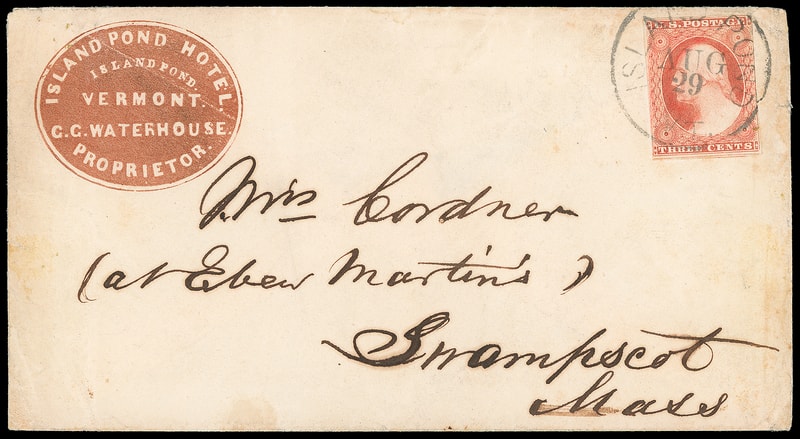 ISLAND POND HOTEL,
ISLAND POND,
VERMONT.
G.G. WATERHOUSE.
PROPRIETOR.
U.S. POSTAGE
ISLAND POND
AUG
29
THREE CENTS
Mrs Cordner
(at Eben Martin's)
Swampscot
Mass